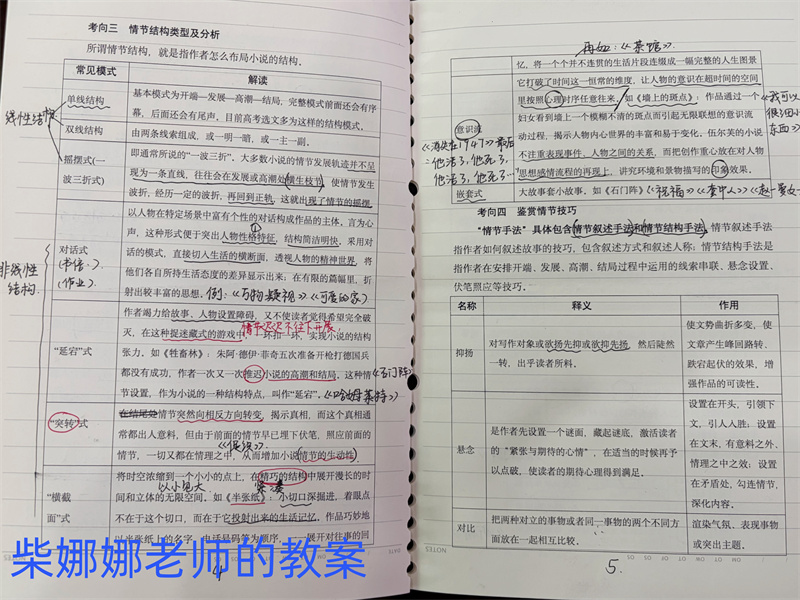 考向三 情节结构类型及分析
所谓情节结构，就是指作者怎么布局小说的结构。
常见模式 解读
单线结构
基本模式为开端—发展—高潮—结局，完整模式前面还会有序
幕，后面还会有尾声，目前高考选文多为这样的结构模式。
双线结构
由两条线索组成，或一明一暗，或一主一副。
线性结构
摇摆式(一
波三折式)
即通常所说的“一波三折”，大多数小说的情节发展轨迹并不呈
现为一条直线，往往会在发展或高潮处横生枝节，使情节发生
波折，经历一定的波折，再回到正轨，这就出现了情节的摇摆。
非线性
结构
对话式
(书信、)
(作业)
以人物在特定场景中富有个性的对话构成作品的主体。言为心
声，这种形式便于突出人物性格特征，结构简洁明快，采用对
话的模式，直接切入生活的横断面，透视人物的精神世界，将
他们各自所持生活态度的差异显示出来；在有限的篇幅里，折
射出较丰富的思想。例：《万物凝视》《可爱的家》
“延宕”式
作者竭力给故事、人物设置障碍，又不使读者觉得希望完全破
情节迟迟不往下开展
灭，在这种捉迷藏式的游戏中，一环扣一环，实现小说的结构
张力。如《牲畜林》：朱阿·德伊·菲奇五次准备开枪打德国兵
都没有成功，作者一次又一次推迟小说的高潮和结局，这种情《石门阵》
节设置，作为小说的一种结构特点，叫作“延宕”。《哈姆莱特》
“突转”式
在结尾处情节突然向相反方向转变，揭示真相，而这个真相通
常都出人意料，但由于前面的情节早已埋下伏笔，照应前面的
情节，一切又都在情理之中，从而增加小说情节的生动性
“横截
面”式
将时空浓缩到一个小小的点上，在精巧的结构中展开漫长的时
以小见大
间和立体的无限空间。如《半张纸》：小切口深掘进，着眼点
不在于这个切口，而在于它投射出来的生活记忆，作品巧妙地
以半张纸上的名字、电话号码等为顺序，一一展开对往事的回
柴娜娜老师的教案
4
再如：《茶馆》.
忆，将一个个并不连贯的生活片段连缀成一幅完整的人生图景
意识流
它打破了时间这一恒常的维度，让人物的意识在超时间的空间
里按照心理时序任意往来。如《墙上的斑点》：作品通过一个
妇女看到墙上一个模糊不清的斑点而引起无限联想的意识流
动过程，揭示人物内心世界的丰富和易于变化。伍尔芙的小说
不注重表现事件、人物之间的关系，而把创作重心放在对人物
思想感情流程的再现上，讲究环境和景物描写的印象效果。
他活了，他死了，
他活了，他死了…
嵌套式
大故事套小故事。如《石门阵》《祝福》《套中人》
考向四 鉴赏情节技巧
“情节手法”具体包含情节叙述手法和情节结构手法，情节叙述手法
指作者如何叙述故事的技巧，包含叙述方式和叙述人称；情节结构手法是
指作者在安排开端、发展、高潮、结局过程中运用的线索串联、悬念设置、
伏笔照应等技巧。
名称 释义 作用
抑扬
对写作对象或欲扬先抑或欲抑先扬，然后陡然
一转，出乎读者所料。
使文势曲折多变，使
文章产生峰回路转、
跌宕起伏的效果，增
强作品的可读性。
悬念
是作者先设置一个谜面，藏起谜底，激活读者
的“紧张与期待的心情”，在适当的时候再予
以点破，使读者的期待心理得到满足。
设置在开头，引领下
文，引人入胜；设置
在文末，有意料之外、
情理之中之效；设置
在矛盾处，勾连情节，
深化内容。
对比
把两种对立的事物或者同一事物的两个不同方
面放在一起相互比较。
渲染气氛、表现事物
或突出主题。
5.